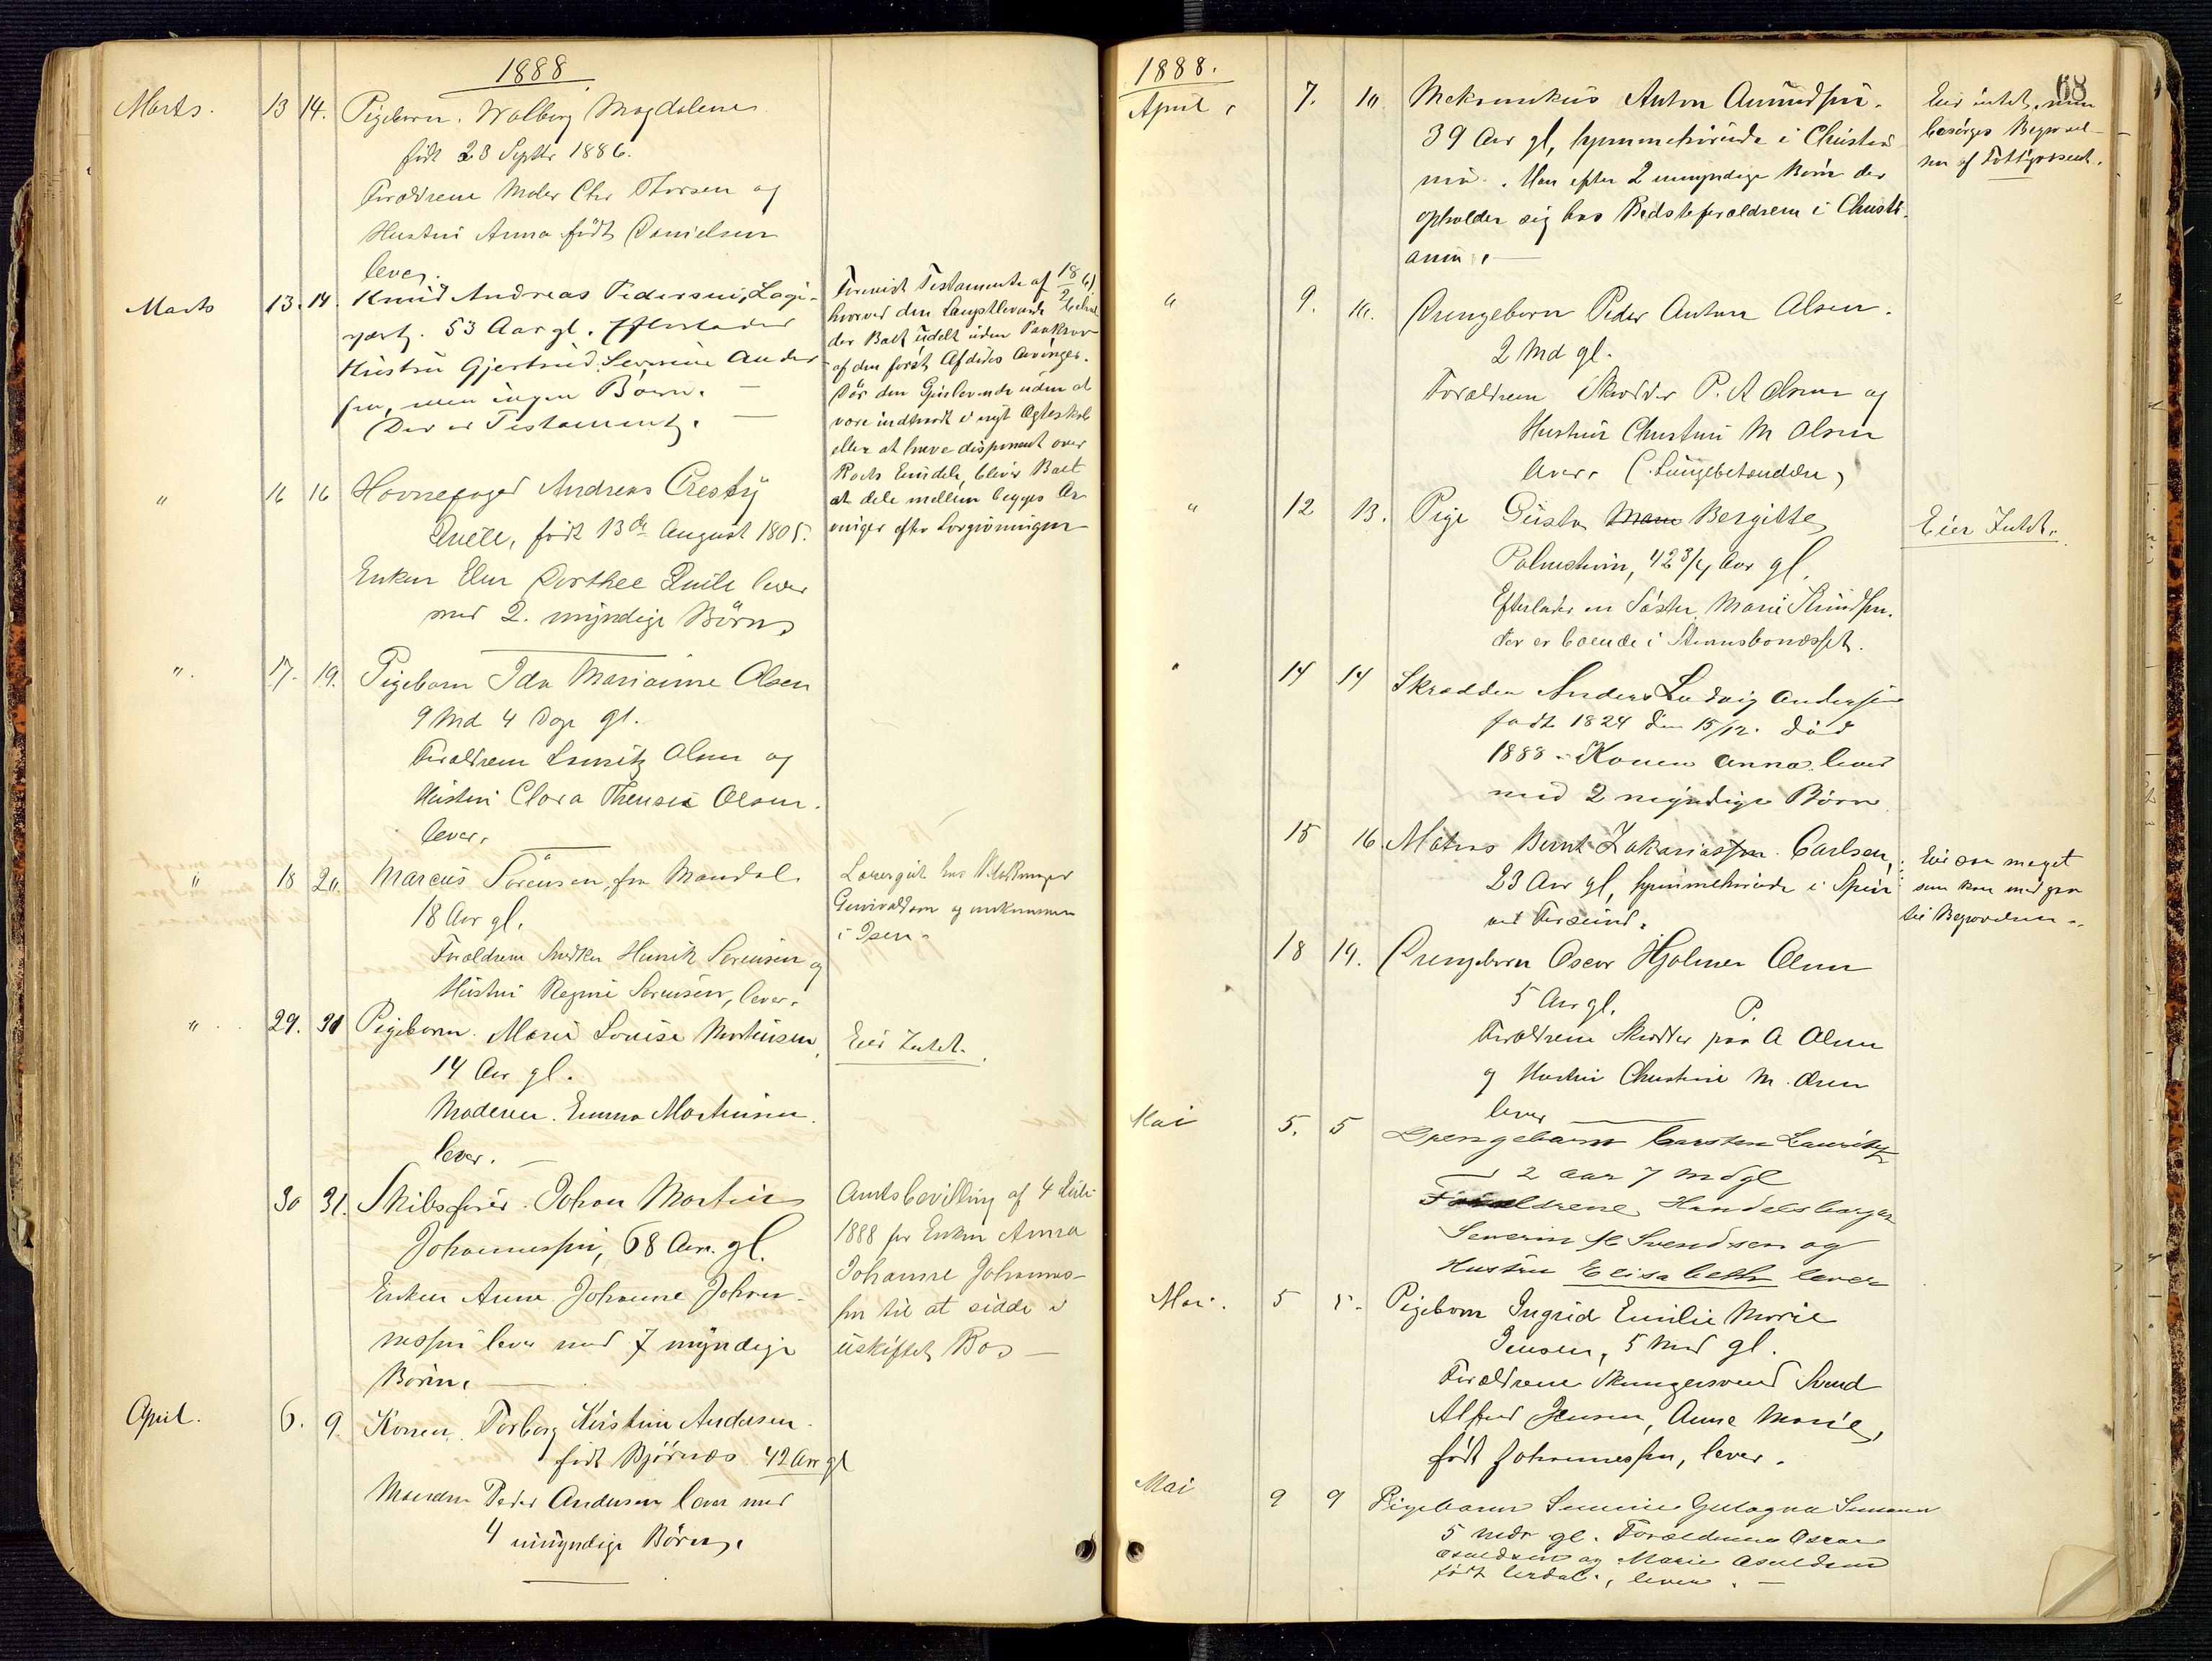 1888
Marts. 13 14. Pigebarn. Walborg Magdalene
født 23 Septbr 1886.
Forældrene Maler Chr Thorsen og
Hustru Anna født Danielsen
lever.
Marts 13. 14. Knud Andreas Pedersen, Logi-
vært. 53 Aar gl. Efterlader
Hustru Gjertrud Severine Ander
sen, men ingen Børn. —
Der er Testament. —
Testament af 18
hvorved den Længstlevende
der Boet udelt uden
af den først Afdødes Arvinger.
Dør den Gjenlevende uden at
være indtraadt i nyt Ægteskab
eller at have disponeret over
Boets Eiendele, bliver Boet
at dele mellem begges Ar
vinger efter Lovgivningen
" 16 16 Havnefoged Andreas
født 13de August 1805.
Enken Elen Dorthee lever
med 2. myndige Børn
". 17. 19. Pigebarn Ida Marianne Olsen
9 Md 4 Dage gl.
Forældrene Lauritz Olsen og
Hustru Clara Olsen.
lever.
" 18 20. Marcus Sørensen, fra Mandal.
18 Aar gl.
Forældrene Snedker Henrik Sørensen og
Hustru Regine Sørensen, lever.
hos
og omkommen
i
" 29. 31 Pigebarn. Marie Louise Mortensen,
14 Aar gl.
Moderen. Emma Mortensen.
lever. —
Eier Intet.
30 31. Skibsfører. Johan Martin
Johannessen, 68 Aar. gl.
Enken Anne Johanne Johan-
nessen lever med 7 myndige
Børn. —
Amtsbevilling af 4 Juli
1888 for Enken Anna
Johanne Johannes-
sen til at sidde i
uskiftet Bo —
April. 6. 9. Konen. Torborg Kirstine Andersen.
født Bjørnæs 42 Aar gl
Manden Peder Andersen lever med
4 umyndige Børn.
1888.
68
April 7. 10. Mekanikus Anton Amundsen.
39 Aar gl, hjemmehørende i Christia
nia. Han efter 2 umyndige Børn der
opholder sig hos Bedsteforældrene i Christi-
ania. —
Eier intet, men
besørges Begravel-
sen af Fattigvæsenet.
" 9. 10. Drengebarn Peder Anton Olsen.
2 Md gl.
Forældrene Skrædder P. A Olsen og
Hustru Christine M Olsen
lever. (Lungebetændelse)
" 12 13. Pige Gusta Bergitte
42 3/4 Aar gl.
Efterlader en Søster Marie Knudsen.
der er boende i
Eier Intet.
" 14 14 Skrædder Anders Ludvig Andersen
født 1824 den 15/12. død
1888 - Konen Anna lever
med 2 myndige Børn
15 16. Matros Bernt Zakariassen Carlsen,
23 Aar gl, hjemmehørende i
ved Farsund.
Eier saa meget
som kan medgaa
til Begravelsen.
18 19. Drengebarn Oscar Hjalmar Olsen
5 Aar gl. P.
Forældrene Skrædder A Olsen
og Hustru Christine M. Olsen
lever —
Mai 5. 5 Drengebarn Carsten
2 aar 7 md gl
Forældrene Handelsborger
Severin Svendsen og
Hustru Elisabeth lever
Mai. 5 5. Pigebarn Ingrid Emilie Marie
Jensen, 5 Md gl.
Forældrene Svend
Alfred Jensen, Anne Marie,
født Johannessen, lever.
Mai 9 9 Pigebarn
5 mdr gl. Forældrene Oscar
og Marie
født lever. —